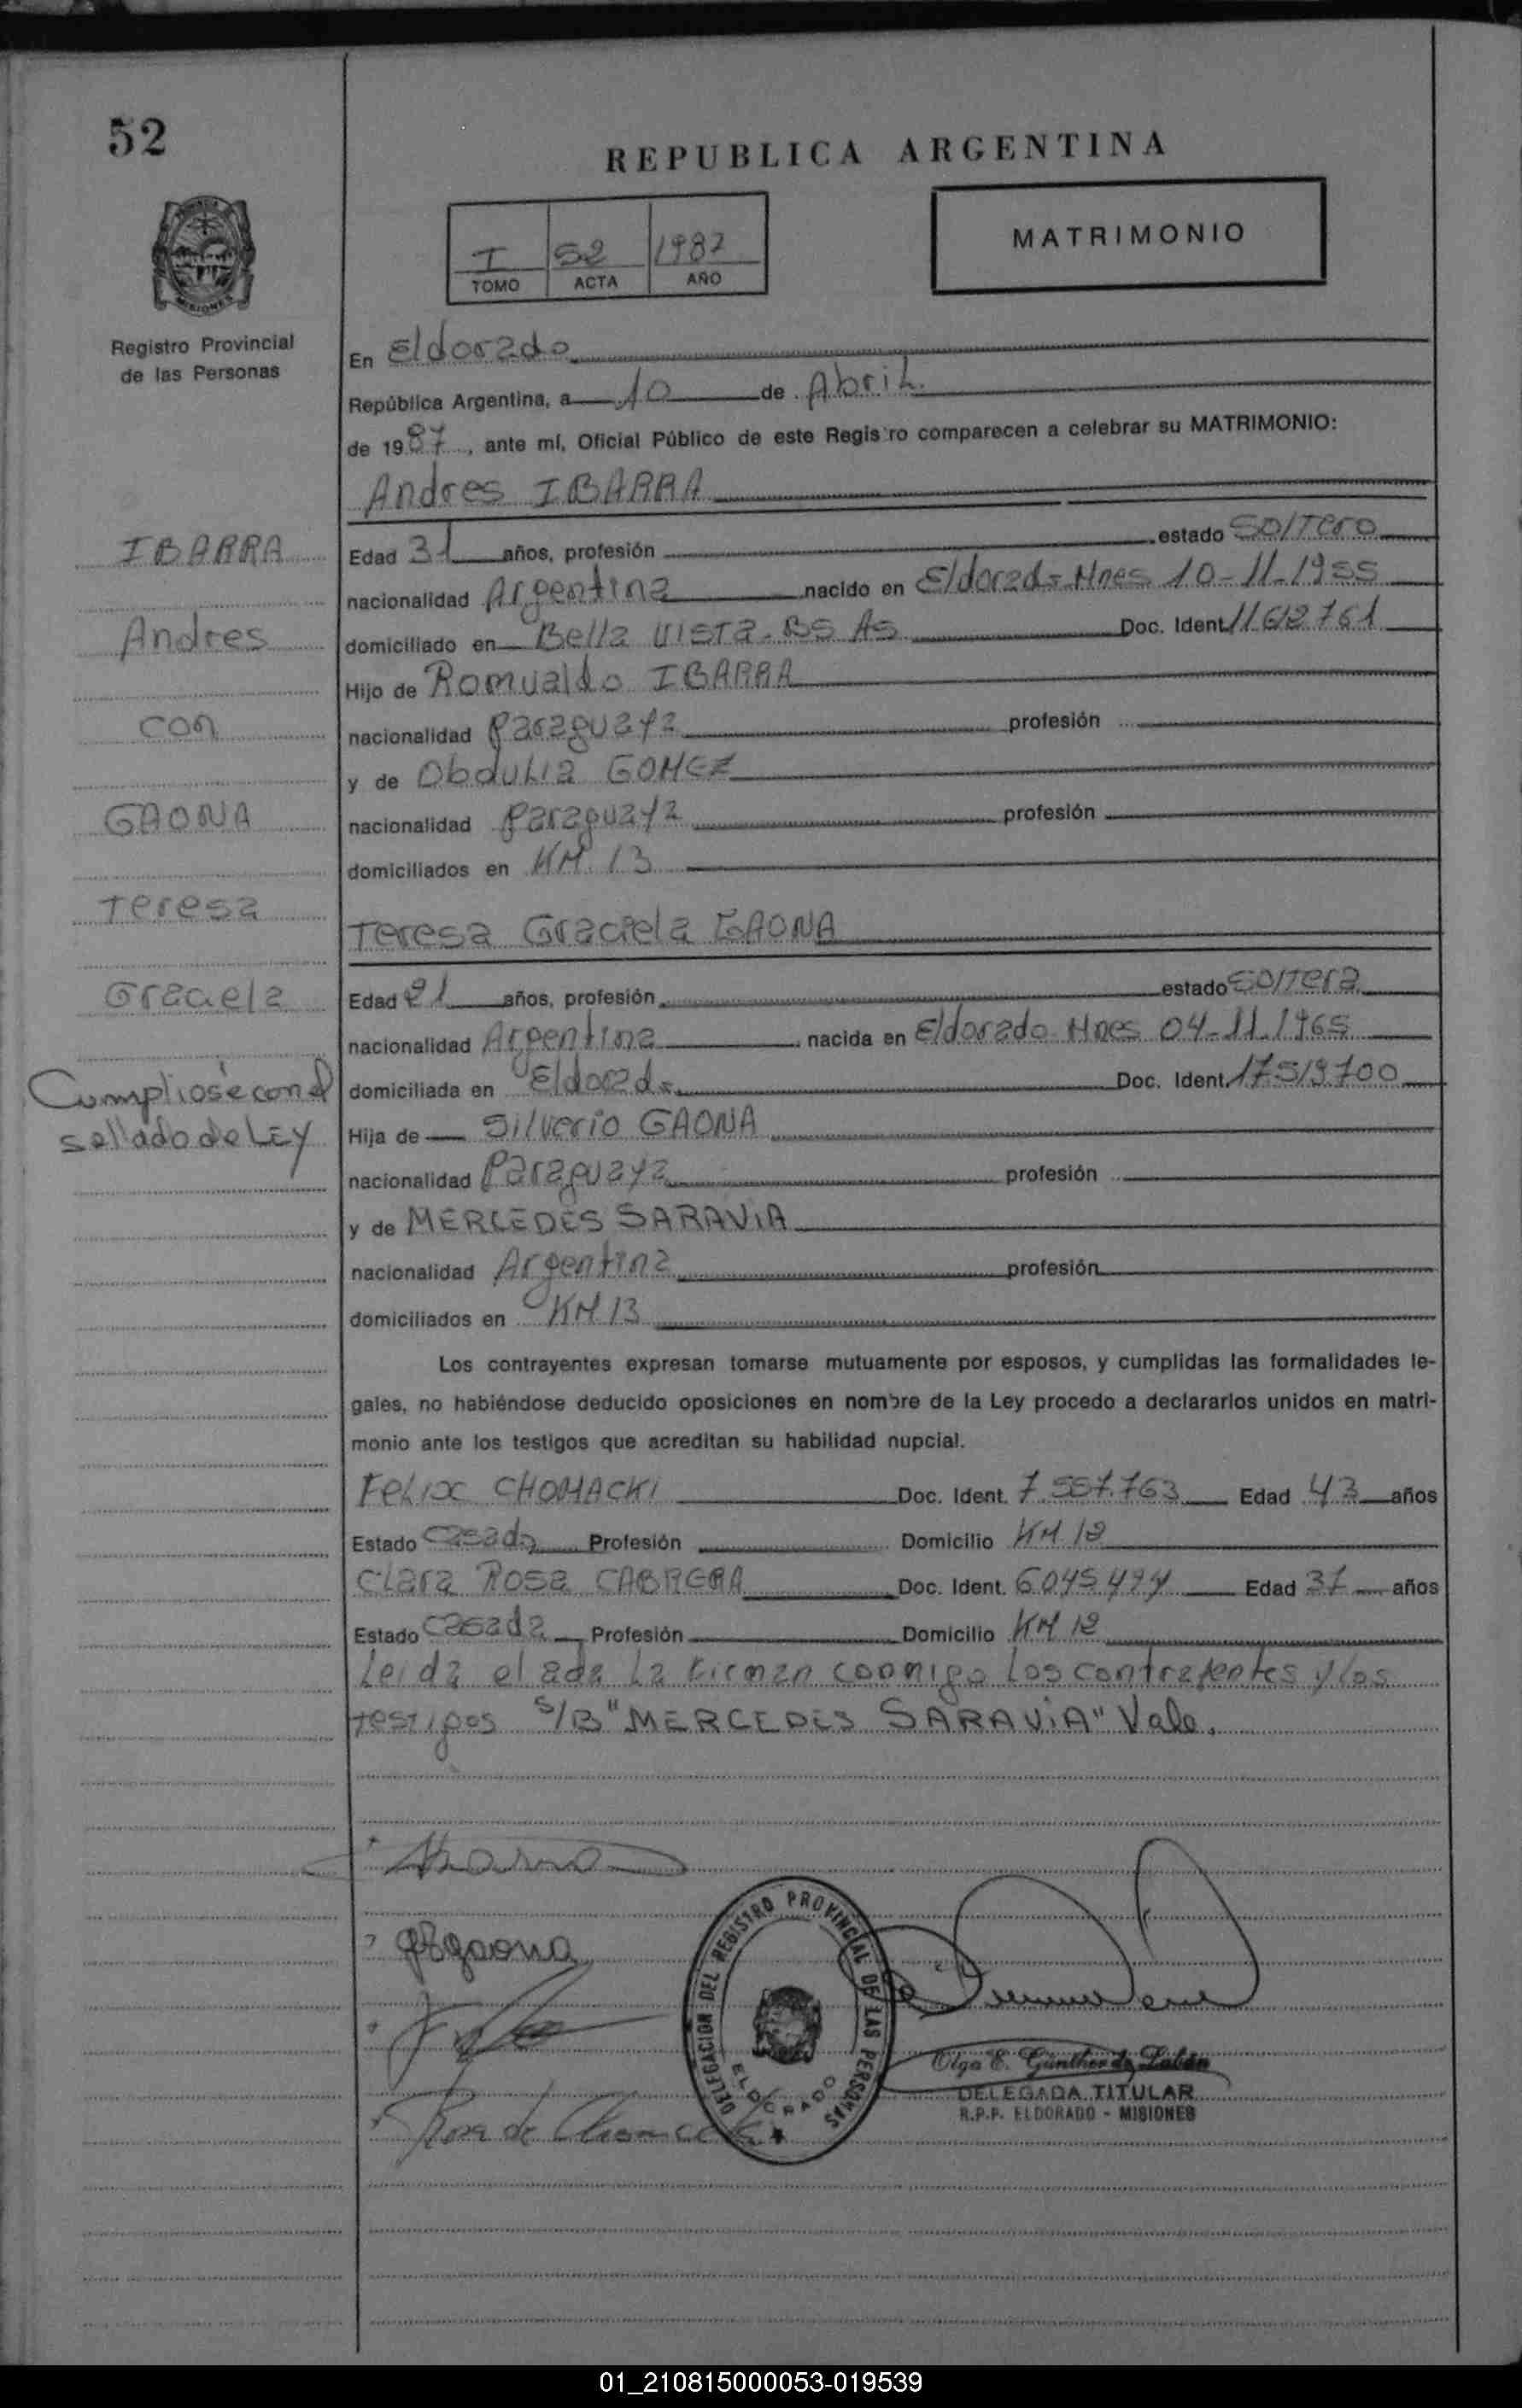 52
REPUBLICA ARGENTINA
I 52 1987
TOMO ACTA AÑO
MATRIMONIO
MISIONES
Registro Provincial
de las Personas
En Eldorado
República Argentina, a 10 de Abril
de 1987, ante mí, Oficial Público de este Registro comparecen a celebrar su MATRIMONIO:
Andres IBARRA
IBARRA
Andres
con
GAONA
Teresa
Graciela
Cumpliose con el
sellado de LEY
Edad 31 años, profesión estado Soltero
nacionalidad Argentina nacido en Eldorado Mnes 10-11-1955
domiciliado en Bella Vista - BS AS Doc. Ident. 11612761
Hijo de Romualdo IBARRA
nacionalidad Paraguaya profesión
y de Obdulia GOMEZ
nacionalidad Paraguaya profesión
domiciliados en KM 13
Teresa Graciela GAONA
Edad 21 años, profesión estado Soltera
nacionalidad Argentina nacida en Eldorado Mnes 04-11-1965
domiciliada en Eldorado Doc. Ident. 17519700
Hija de Silverio GAONA
nacionalidad Paraguaya profesión
y de MERCEDES SARAVIA
nacionalidad Argentina profesión
domiciliados en KM 13
Los contrayentes expresan tomarse mutuamente por esposos, y cumplidas las formalidades le-
gales, no habiéndose deducido oposiciones en nombre de la Ley procedo a declararlos unidos en matri-
monio ante los testigos que acreditan su habilidad nupcial.
Felix CHOMACKI Doc. Ident. 7.557.763 Edad 43 años
Estado Casado Profesión Domicilio KM 18
Clara Rosa CABRERA Doc. Ident. 6045494 Edad 37 años
Estado Casada Profesión Domicilio KM 18
Leida el acta La firman conmigo Los contrayentes y los
testigos S/B "MERCEDES SARAVIA" Vale.
Ibarra
Gaona
Rosa de Chomacki
DELEGACION DEL REGISTRO PROVINCIAL DE LAS PERSONAS
ELDORADO
Olga E. Günther de
DELEGADA TITULAR
R.P.P. ELDORADO - MISIONES
01_210815000053-019539